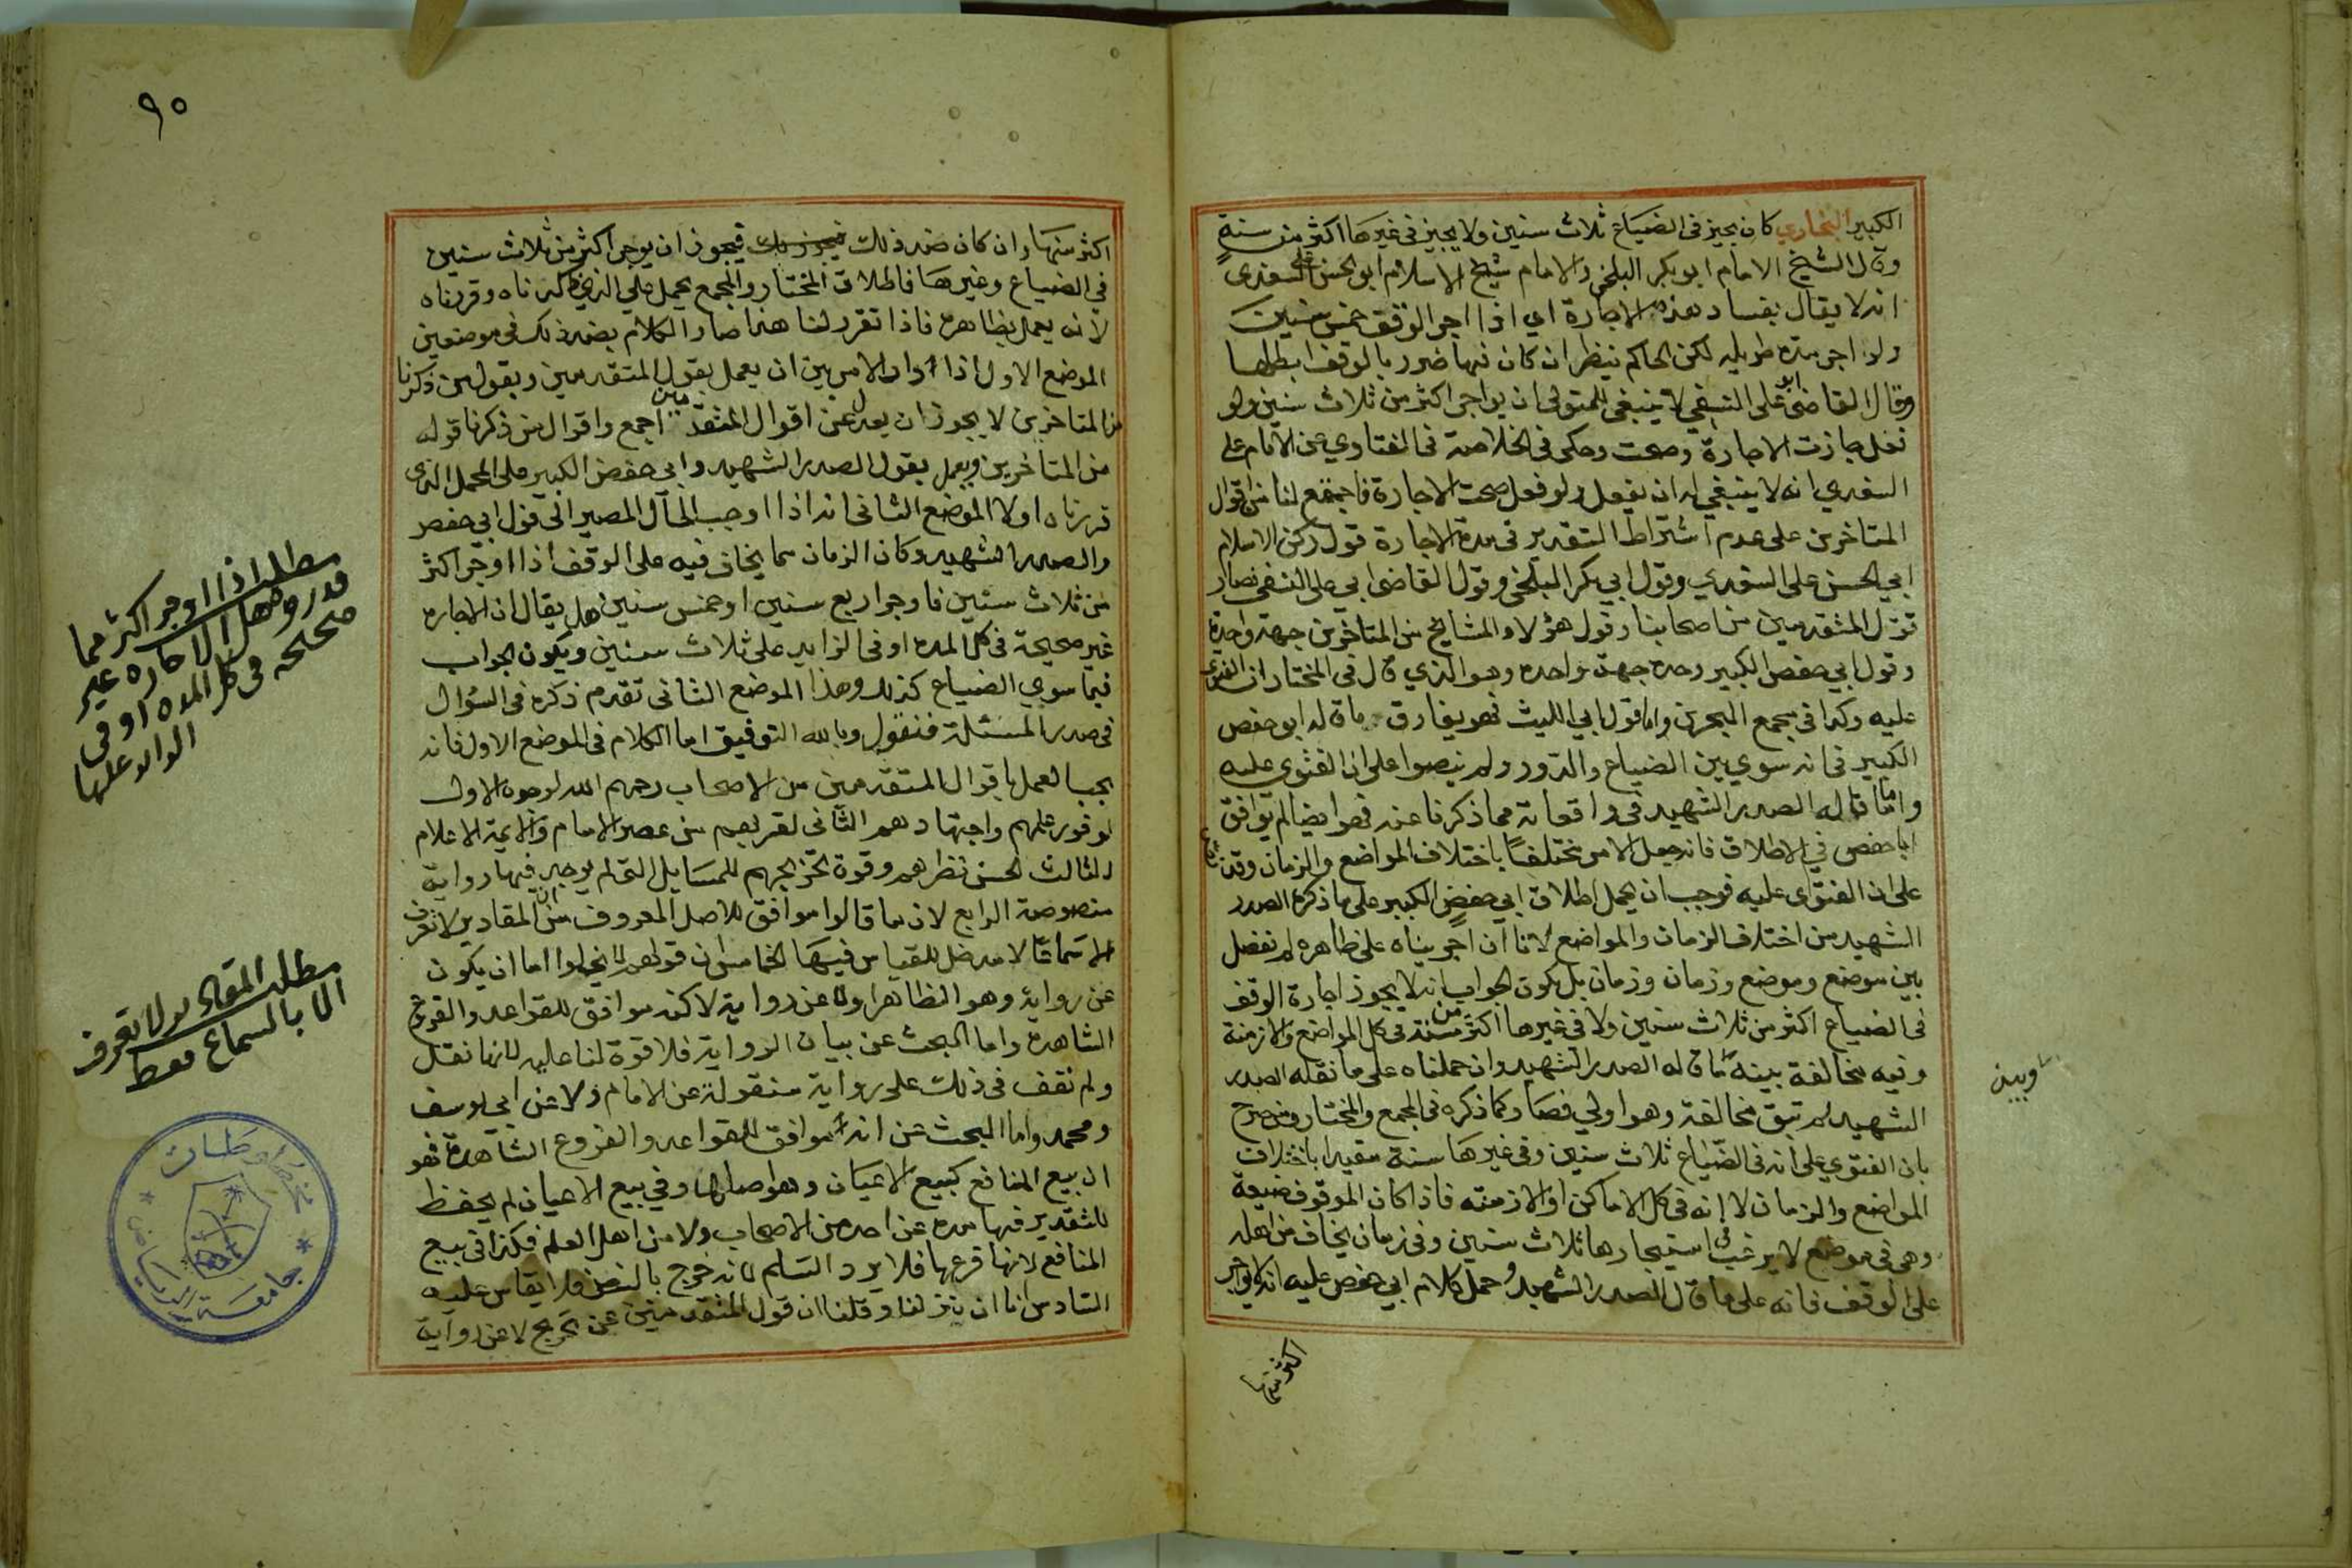 الكبير البخاري كان يجيز في الضياع ثلاث سنين ولا يجيز في غيرها اكثر من سنة
وقال الشيخ الامام ابو بكر البلخي والامام شيخ الاسلام ابو الحسن علي السغدي
انه لا يقال بفساد هذه الاجارة اي اذا اجر الوقف خمس سنين
ولو اجر مدة طويله لكن الحاكم ينظر ان كان فيها ضرر بالوقف ابطلها
وقال القاضي ابو علي النسفي لا ينبغي للمتولي ان يواجر اكثر من ثلاث سنين ولو
فعل جازت الاجارة وصحت وحكى في الخلاصة في الفتاوي عن الامام علي
السغدي انه لا ينبغي له ان يفعل ولو فعل صحت الاجارة فاجتمع لنا من اقوال
المتاخرين على عدم اشتراط التقدير في مدة الاجارة قول ركن الاسلام
ابي الحسن على السغدي وقول ابي بكر البلخي وقول القاضي ابي علي النسفي فصار
قول المتقدمين من اصحابنا وقول هؤلاء المشايخ من المتاخرين جهة واحدة
وقول ابي حفص الكبير وحده جهة واحده وهو الذي قال في المختار ان الفتوى
عليه وكذا في مجمع البحرين واما قول ابي الليث فهو يفارق ما قاله ابو حفص
الكبير في انه سوي بين الضياع والدور ولم ينصوا على ان الفتوى عليه
واما ما قاله الصدر الشهيد في واقعاته مما ذكرنا عنه فهو ايضا لم يوافق
ابا حفص في الاطلاق فانه جعل الامر مختلفا باختلاف المواضع والزمان وقد
على ان الفتوى عليه فوجب ان يحمل اطلاق ابي حفص الكبير على ما ذكره الصدر
الشهيد من اختلاف الزمان والمواضع لانا ان اجريناه على ظاهره لم نفصل
بين موضع وموضع وزمان وزمان بل يكون الجواب انه لا يجوز اجارة الوقف
في الضياع اكثر من ثلاث سنين ولا في غيرها اكثر من سنة في كل المواضع والازمنة
وفيه مخالفة بينة لما قاله الصدر الشهيد وان حملناه على ما نقله الصدر
الشهيد لم تبق مخالفة وهو اولي فصار كما ذكره في المجمع والمختار من صرح
بان الفتوي على انه في الضياع ثلاث سنين وفي غيرها سنة مقيدا باختلاف
المواضع والزمان لا انه في كل الاماكن او الازمنه فاذا كان الموقوف ضيعة
وهي في موضع لا يرغب في استيجارها ثلاث سنين وفي زمان يخاف من اهله
على الوقف فانه على ما قال الصدر الشهيد وحمل كلام ابي حفص عليه انه لا يوجر
اكثر منها
وبين
٩٠
اكثر منها وان كان ضد ذلك فيجوز ان يوجر اكثر من ثلاث سنين
في الضياع وغيرها فاطلاق المختار والمجمع يحمل على الذي ذكرناه وقررناه
لا انه يعمل بظاهره فاذا تقرر لنا هذا صار الكلام بعد ذلك في موضعين
الموضع الاول اذا الامر بين ان يعمل بقول المتقدمين وبقول من ذكرنا
من المتاخرين لا يجوز ان يعدل عن اقوال المتقدمين اجمع واقوال من ذكرنا قوله
من المتاخرين ويعمل بقول الصدر الشهيد وابي حفص الكبير على المحمل الذي
قررناه اولا الموضع الثاني انه اذا اوجب الحال المصير الى قول ابي حفص
والصدر الشهيد وكان الزمان مما يخاف فيه على الوقف اذا اوجر اكثر
من ثلاث سنين فاوجر اربع سنين او خمس سنين هل يقال ان الاجاره
غير صحيحة في كل المده او في الزايد على ثلاث سنين ويكون الجواب
فيما سوي الضياع كذلك وهذا الموضع الثاني تقدم ذكره في السؤال
في صدر المسئلة فنقول وبالله التوفيق اما الكلام في الموضع الاول فانه
يجب العمل باقوال المتقدمين من الاصحاب رحمهم الله لوجوه الاول
لوفور علمهم واجتهادهم الثاني لقربهم من عصر الامام والايمة الاعلام
الثالث لحسن نظرهم وقوة تخريجهم للمسايل التي لم يوجد فيها رواية
منصوصة الرابع لان ما قالوا موافق للاصل المعروف من ان المقادير لا تعرف
الا سماعا لا مدخل للقياس فيها الخامس ان قولهم لا يخلوا اما ان يكون
عن رواية وهو الظاهر او لا عن رواية لاكنه موافق للقواعد والفروع
الشاهدة واما البحث عن بيان الرواية فلا قوة لنا عليه لانها نقل
ولم نقف في ذلك على رواية منقولة عن الامام ولا عن ابي يوسف
ومحمد واما البحث عن انه موافق للقواعد والفروع الشاهدة فهو
ان بيع المنافع كبيع الاعيان وهو اصلها وفي بيع الاعيان لم يحفظ
للتقدير فيها مده عن احد من الاصحاب ولا من اهل العلم فكذا في بيع
المنافع لانها فرعها فلا يرد السلم لانه خرج بالنص فلا يقاس عليه
السادس انا ان نزلنا وقلنا ان قول المتقدمين عن تخريج لا عن رواية
مطلب اذا اوجر اكثر مما
قدروه هل الاجاره غير
صحيحه في كل المده او في
الزايد عليها
مطلب المقادير لا تعرف
الا بالسماع فقط
جامعة الرياض
مخطوطات